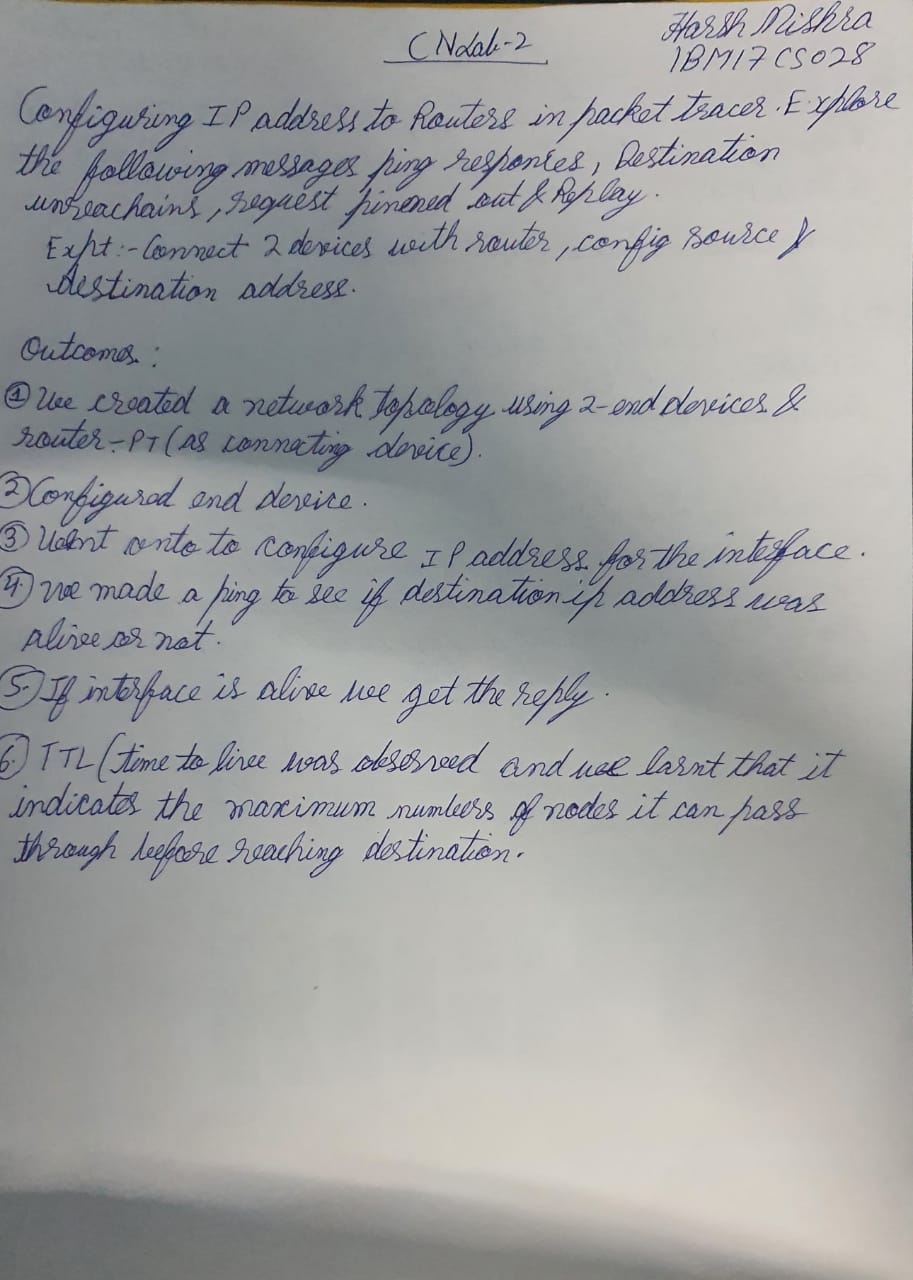 CN Lab-2
Harsh Mishra
1BM17CS028
Configuring IP address to Routers in packet tracer. Explore
the following messages ping responses, Destination
unreachains, request pinened out & Replay.
Expt:- Connect 2 devices with router, config source &
destination address.
Outcomes:
① We created a network topology using 2-end devices &
router-PT (as connecting device).
② Configured end device.
③ Went onto to configure IP address for the interface.
④ we made a ping to see if destination ip address was
alive or not.
⑤ If interface is alive we get the reply.
⑥ TTL (time to live was observed and we larnt that it
indicates the maximum numbers of nodes it can pass
through before reaching destination.